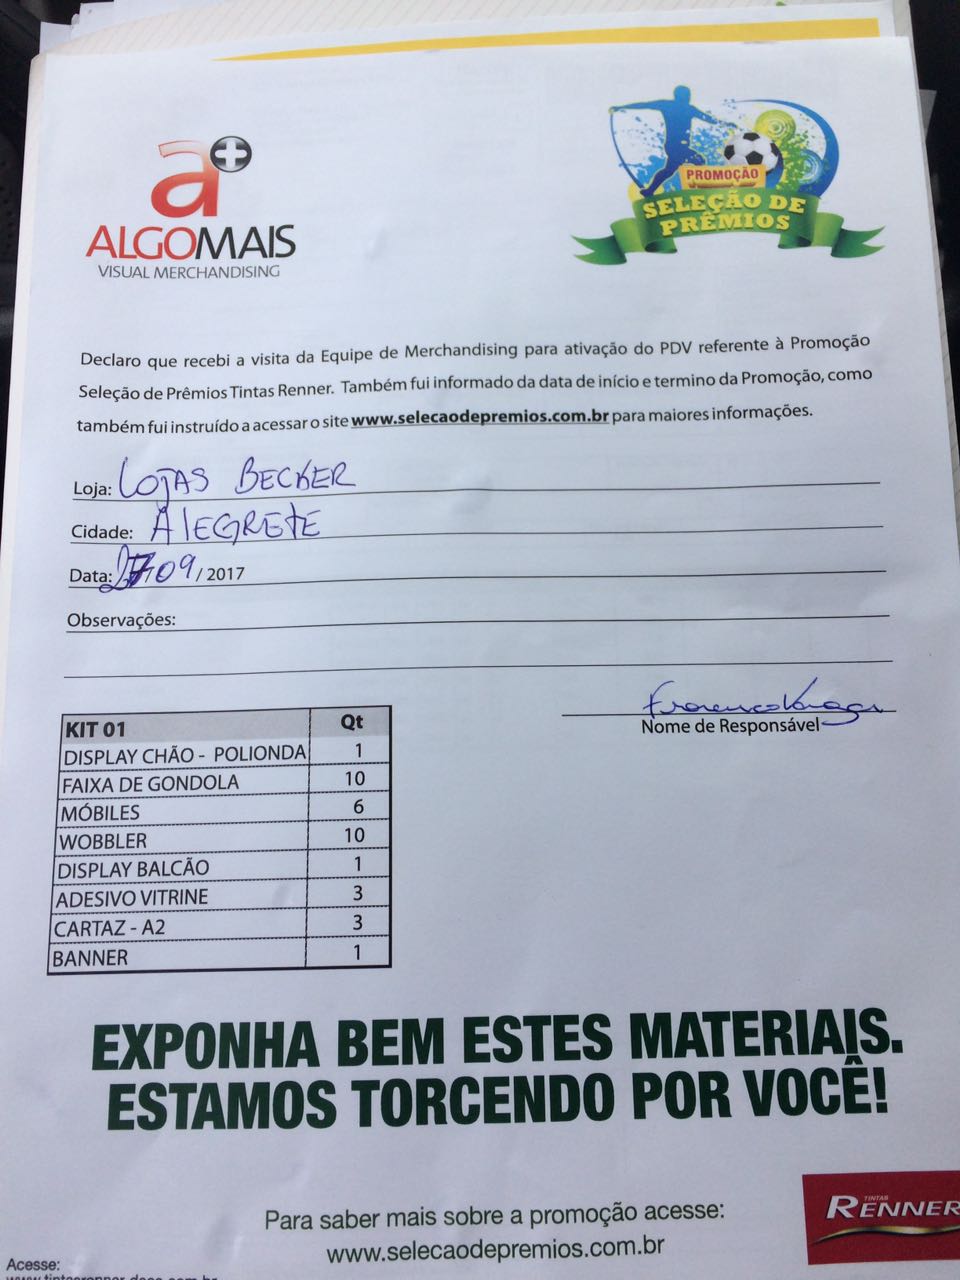 a+
ALGOMAIS
VISUAL MERCHANDISING
PROMOÇÃO
SELEÇÃO DE
PRÊMIOS
Declaro que recebi a visita da Equipe de Merchandising para ativação do PDV referente à Promoção
Seleção de Prêmios Tintas Renner. Também fui informado da data de início e termino da Promoção, como
também fui instruído a acessar o site www.selecaodepremios.com.br para maiores informações.
Loja: LOJAS BECKER
Cidade: AlEGRETE
Data: 27/09 / 2017
Observações:
Nome de Responsável
KIT 01 Qt
DISPLAY CHÃO - POLIONDA 1
FAIXA DE GONDOLA 10
MÓBILES 6
WOBBLER 10
DISPLAY BALCÃO 1
ADESIVO VITRINE 3
CARTAZ - A2 3
BANNER 1
EXPONHA BEM ESTES MATERIAIS.
ESTAMOS TORCENDO POR VOCÊ!
TINTAS
RENNER
Para saber mais sobre a promoção acesse:
www.selecaodepremios.com.br
Acesse: